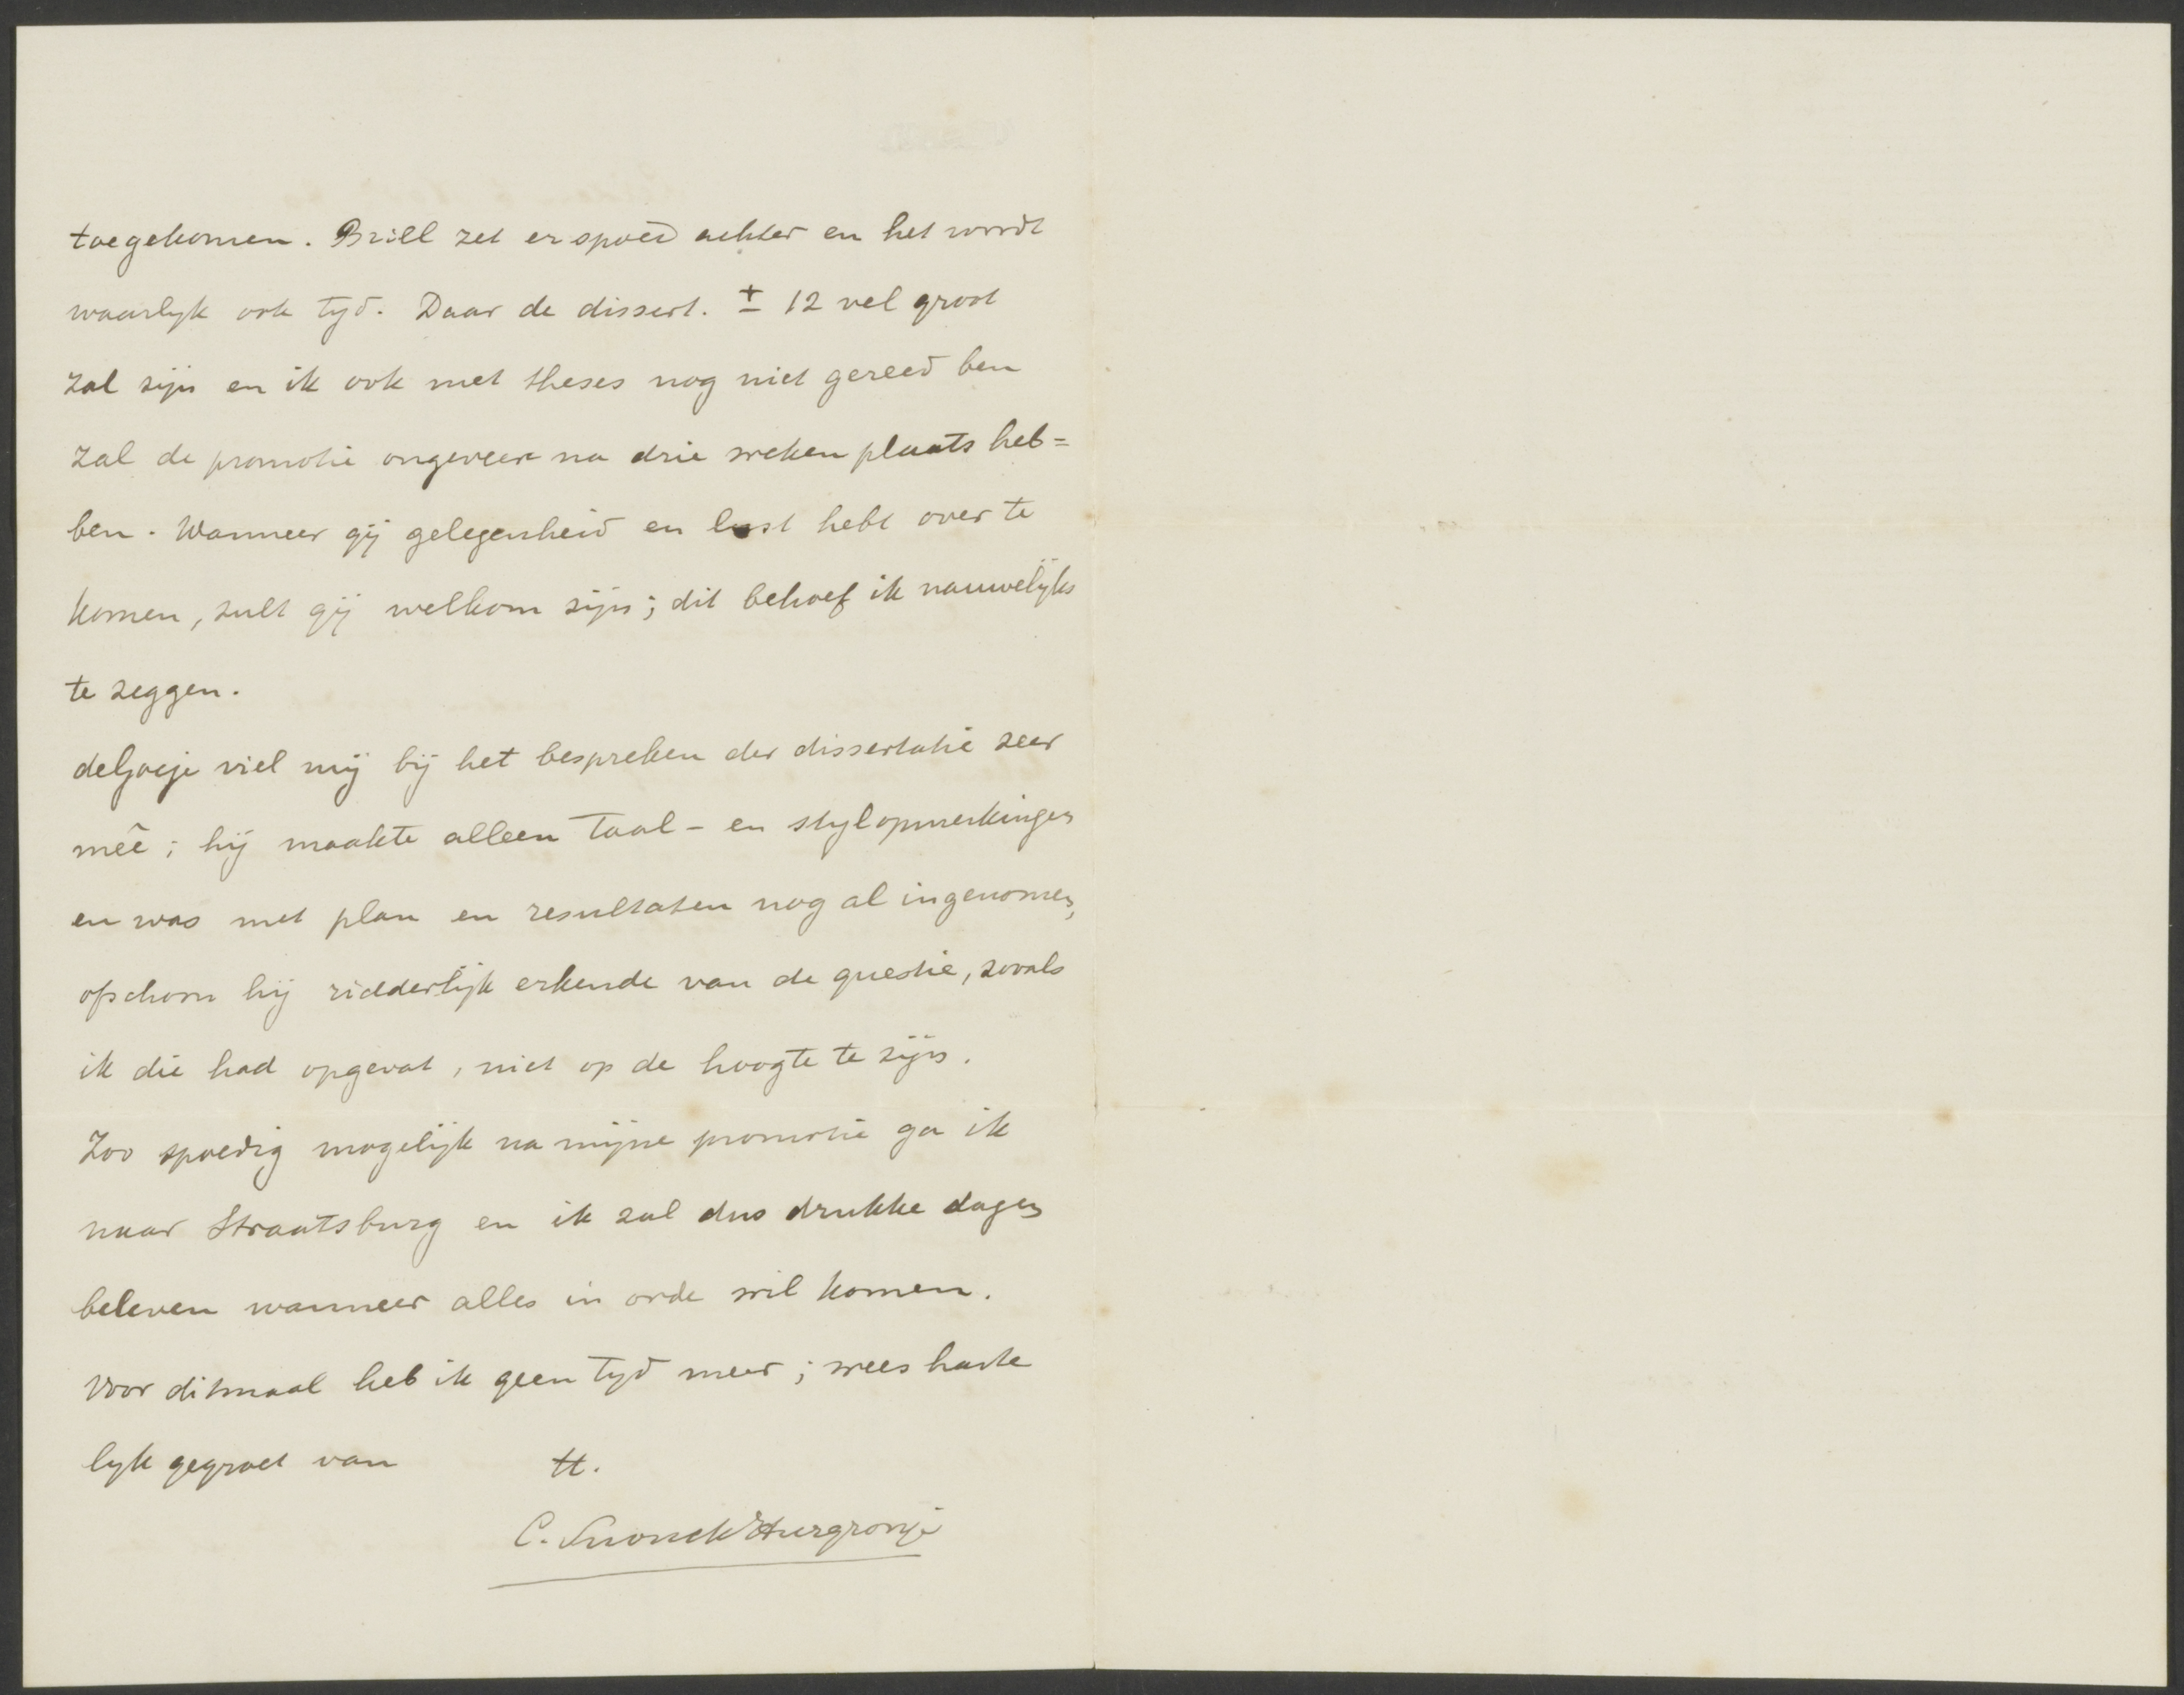 toegekomen. Brill zet er spoed achter en het wordt
waarlyk ook tyd. Daar de dissert. ± 12 vel groot
zal zijn en ik ook met theses nog niet gereed ben
zal de promotie ongeveer na drie weken plaats heb=
ben. Wanneer gij gelegenheid en lust hebt over te
komen, zult gij welkom zijn; dit behoef ik nauwelijks
te zeggen.
deGoeje viel mij bij het bespreken der dissertatie zeer
meê; hij maakte alleen taal- en stylopmerkingen
en was met plan en resultaten nog al ingenomen,
ofschoon hij ridderlijk erkende van de questie, zooals
ik die had opgevat, niet op de hoogte te zijn.
Zoo spoedig mogelijk na mijne promotie ga ik
naar Straatsburg en ik zal dus drukke dagen
beleven wanneer alles in orde wil komen.
Voor ditmaal heb ik geen tyd meer; wees harte
lyk gegroet van tt.
C. Snouck Hurgronje